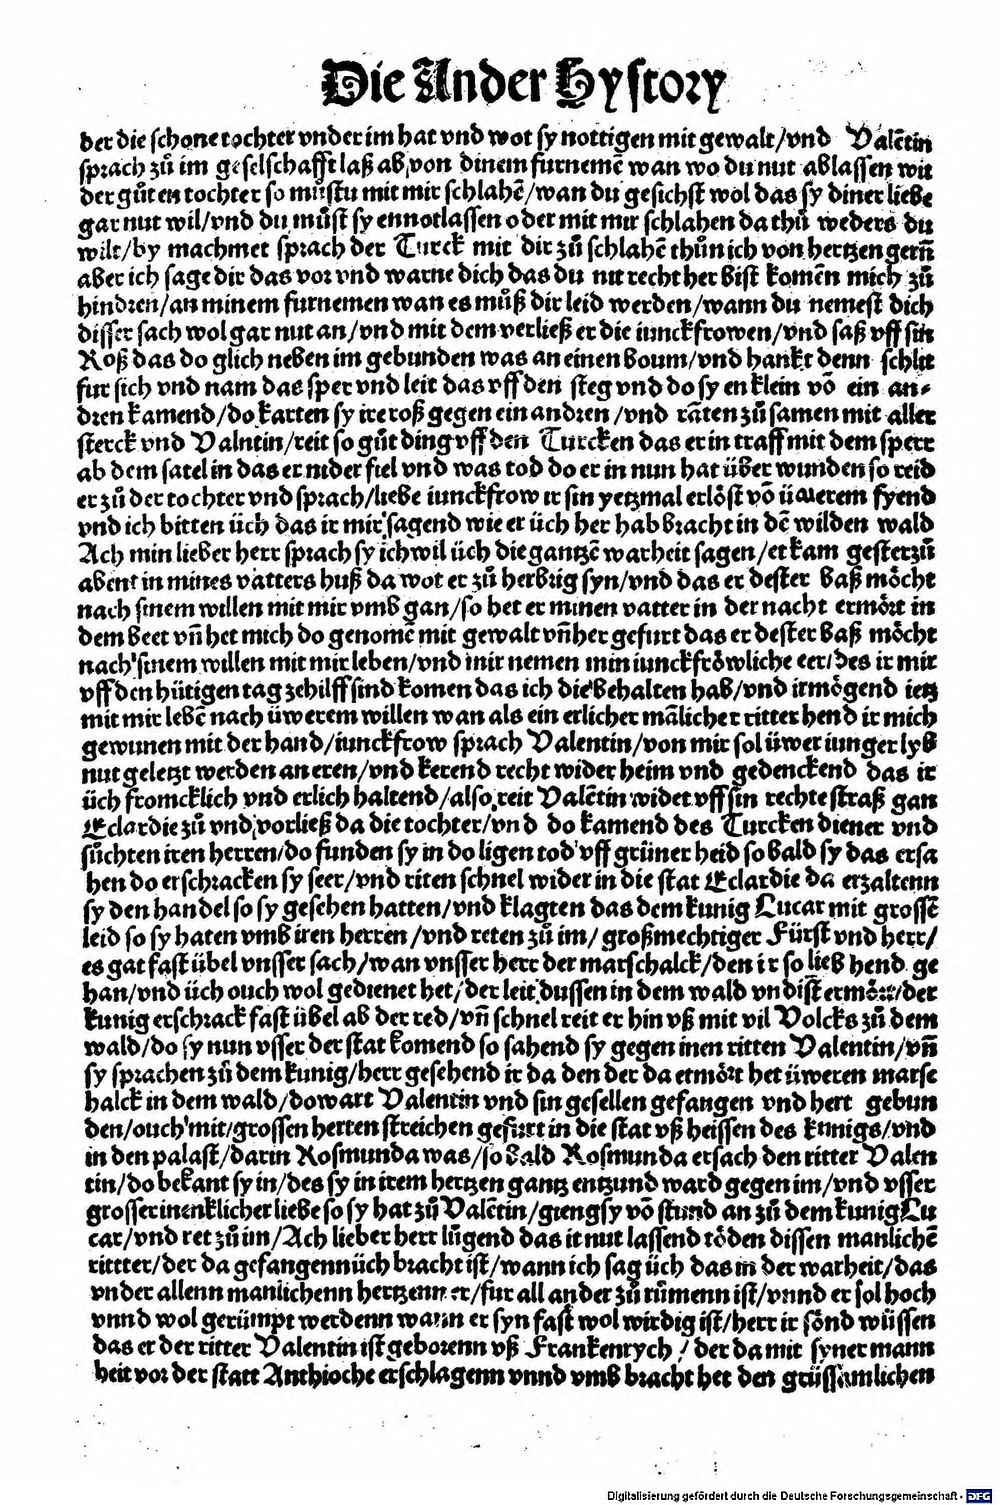 Die Ander Hystory
der die schone tochter vnder im hat vnd wot sy nottigen mit gewalt/vnd Valētin
sprach zů im geselschafft laß ab von dinem furnemē wan wo du nut ablassen wit
der gůten tochter so můstu mit mir schlahē/wan du gesichst wol das sy diner liebe
gar nut wil/vnd du můst sy ennotlassen oder mit mir schlahen da thů weders du
wilt/by machmet sprach der Turck mit dir zů schlahē thůn ich von hertzen gern̄
aber ich sage dir das vor vnd warne dich das du nit recht her bist komēn mich zů
hindren/an minem furnemen wan es můß dir leid werden/wann du nemest dich
disser sach wol gar nut an/vnd mit dem verließ er die iunckfrowen/vnd saß vff sin
Roß das do glich neben im gebunden was an einen boum/vnd hankt denn schlit
fur sich vnd nam das sper vnd leit das vff den steg vnd do sy en klein vō ein an-
dren kamend/do karten sy ire roß gegen ein andren/vnd rāten zů samen mit aller
sterck vnd Valntin/reit so gůt ding vff den Turcken das er in traff mit dem sperr
ab dem satel in das er nider fiel vnd was tod do er in nun hat über wunden so reid
er zů der tochter vnd sprach/liebe iunckfrow ir sin yetzmal erlöst vō üwerem fyend
vnd ich bitten üch das ir mir sagend wie er üch her hab bracht in dē wilden wald
Ach min lieber herr sprach sy ich wil üch die gantzē warheit sagen/er kam gester zů
abent in mines vatters huß da wot er zů herbrig syn/vnd das er dester baß möcht
nach sinem willen mit mir vmb gan/so het er minen vatter in der nacht ermört in
dem beet vn̄ het mich do genomē mit gewalt vn̄ her gefurt das er dester baß möcht
nach sinem willen mit mir leben/vnd mir nemen min iunckfröwliche eer/des ir mir
vff den hütigen tag ze hilff sind komen das ich die behalten hab/vnd ir mögend ietz
mit mir lebē nach üwerem willen wan als ein erlicher mālicher ritter hend ir mich
gewunen mit der hand/iunckfrow sprach Valentin/von mir sol üwer iunger lyb
nut geletzt werden an eren/vnd kerend recht wider heim vnd gedenckend das ir
üch fromcklich vnd erlich haltend/also reit Valētin wider vff sin rechte straß gan
Eclardie zů vnd vorließ da die tochter/vnd do kamend des Turcken diener vnd
sůchten iren herren/do funden sy in do ligen tod vff grüner heid so bald sy das ersa
hen do erschracken sy seer/vnd riten schnel wider in die stat Eclardie da erzaltenn
sy den handel so sy gesehen hatten/vnd klagten das dem kunig Lucar mit grossē
leid so sy haten vmb iren herren/vnd reten zů im/großmechtiger Fürst vnd herr/
es gat fast übel vnsser sach/wan vnsser herr der marschalck/den ir so lieb hend ge
han/vnd üch ouch wol gedienet het/der leit dussen in dem wald vnd ist ermört/der
kunig erschrack fast übel ab der red/vn̄ schnel reit er hin vß mit vil Volcks zů dem
wald/do sy nun vsser der stat komend so sahend sy gegen inen ritten Valentin/vn̄
sy sprachen zů dem kunig/herr gesehend ir da den der da ermört het üweren marsc
halck in dem wald/do wart Valentin vnd sin gesellen gefangen vnd hert gebun
den/ouch mit grossen herten streichen gefürt in die stat vß heissen des kunigs/vnd
in den palast/darin Rosmunda was/so bald Rosmunda ersach den ritter Valen
tin/do bekant sy in/des sy in irem hertzen gantz entzund ward gegen im/vnd vsser
grosser inenklicher liebe so sy hat zů Valētin/gieng sy vō stund an zů dem kunig Lu
car/vnd ret zů im/Ach lieber herr lůgend das ir nut lassend töden dissen manlichē
rittter/der da gefangenn üch bracht ist/wann ich sag üch das in der warheit/das
vnder allenn manlichenn hertzenn er/fur all ander zů rümenn ist/vnnd er sol hoch
vnnd wol gerümpt werdenn wann er syn fast wol wirdig ist/herr ir sönd wüssen
das er der ritter Valentin ist geborenn vß Franckenrych/der da mit syner mann
heit vor der statt Anthioche erschlagenn vnnd vmb bracht het den grüssamlichen
Digitalisierung gefördert durch die Deutsche Forschungsgemeinschaft - DFG